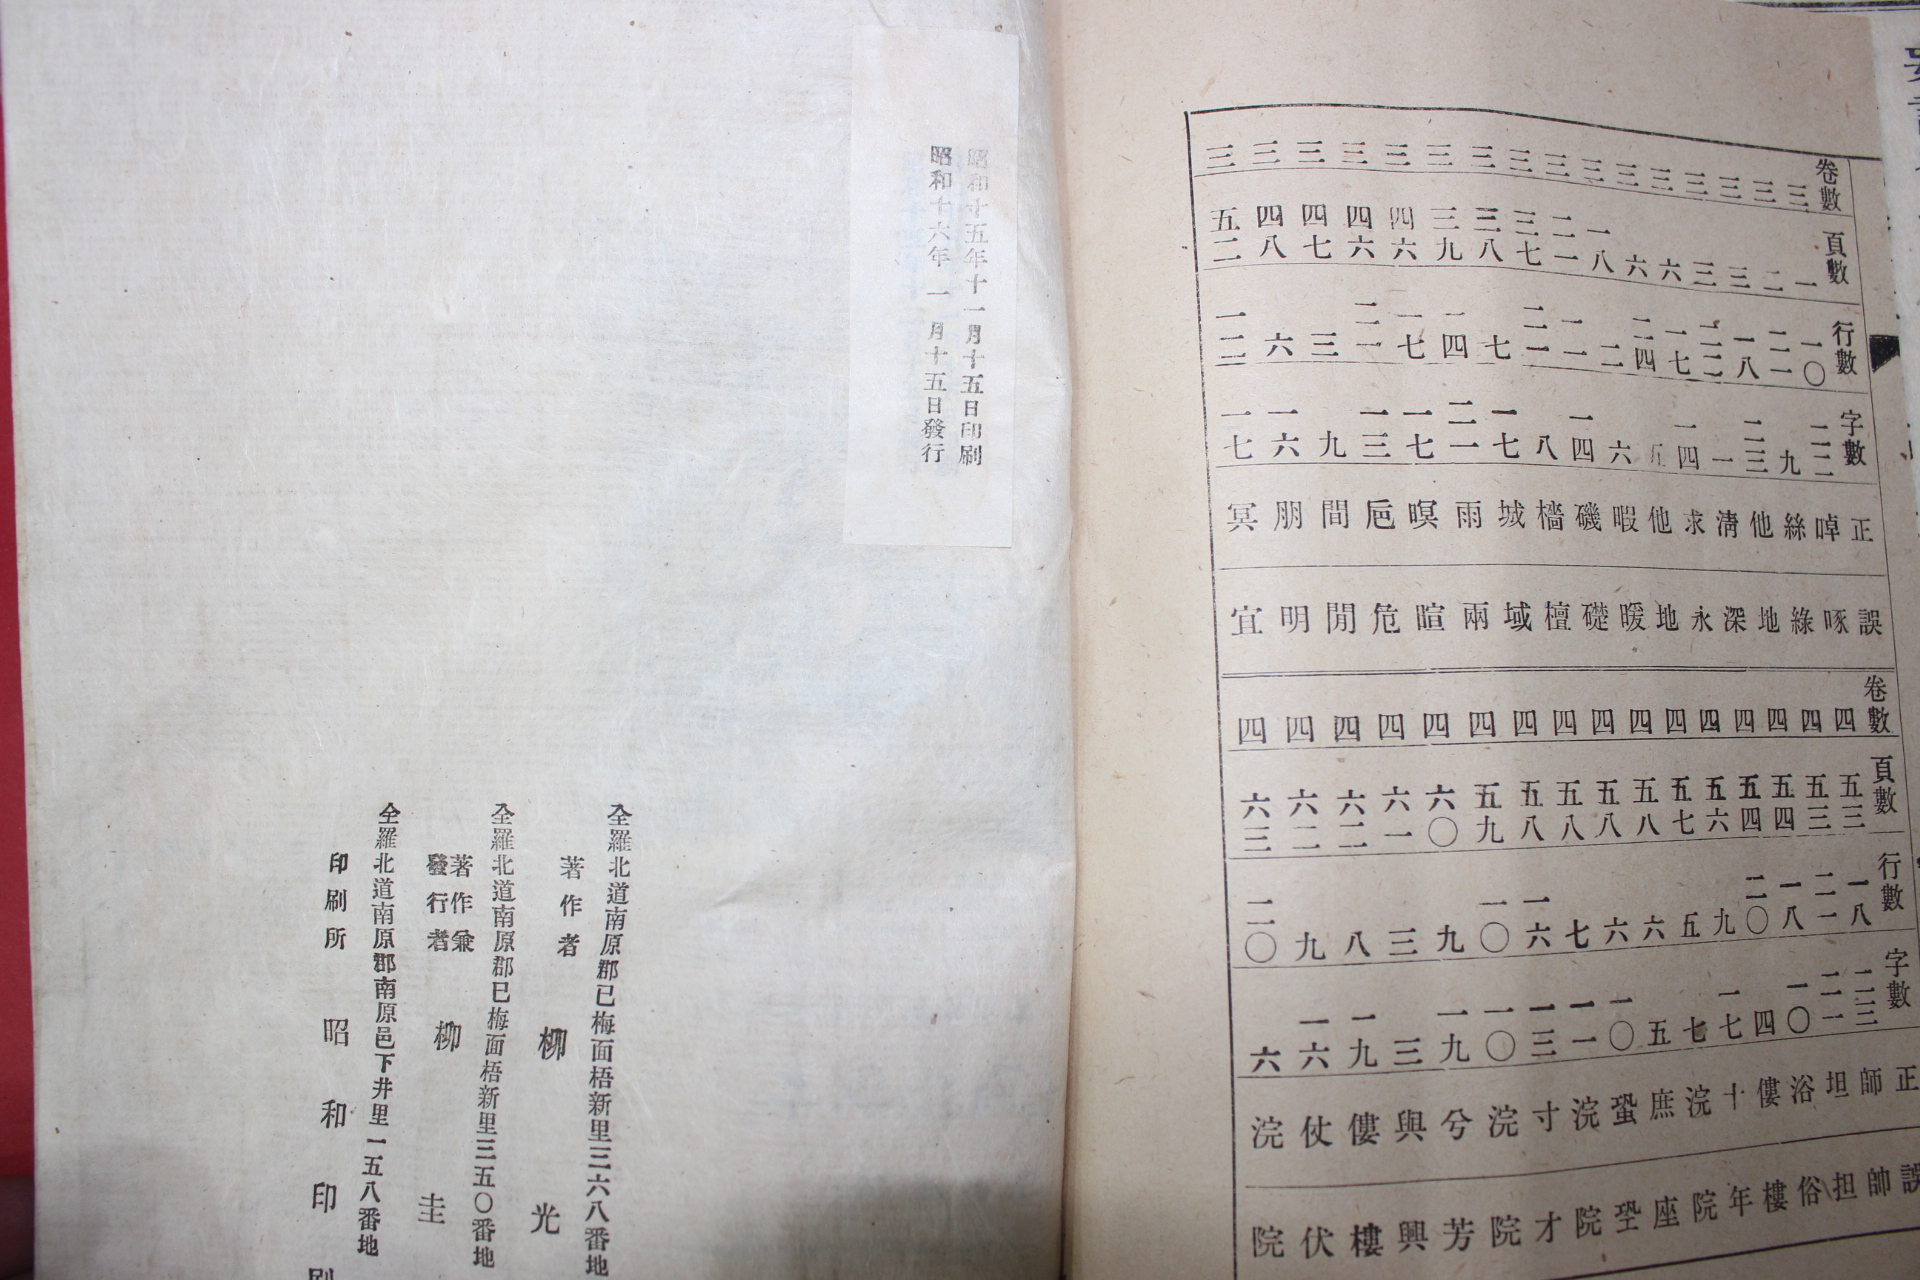 卷數 頁數 行數 字數 正 誤
三 一 一〇 二二 啅 啄
三 二 二一 九 絲 綠
三 三 一八 二三 他 地
三 三 二二 一 淸 深
三 六 一七 一四 求 永
三 六 二四 五 他 地
三 一八 二 六 暇 暖
三 二一 一一 一四 磯 礎
三 三七 二一 八 檣 檀
三 三八 七 一七 城 域
三 三九 一四 二一 雨 兩
三 四六 一七 一七 暝 暄
三 四六 二一 一三 巵 危
三 四七 三 九 間 閒
三 四八 六 一六 朋 明
三 五二 一二 一七 冥 宜
卷數 頁數 行數 字數 正 誤
四 五三 一八 二三 師 帥
四 五三 二一 二一 坦 担
四 五四 一八 一〇 浴 俗
四 五四 二〇 四 僂 樓
四 五六 九 一七 十 年
四 五七 五 七 浣 院
四 五八 六 五 庶 座
四 五八 六 一〇 蛩
四 五八 七 一一 浣 院
四 五八 一六 一三 寸 才
四 五九 一〇 一〇 浣 院
四 六〇 九 一九 兮 芳
四 六一 三 三 與 興
四 六二 八 一九 僂 樓
四 六二 九 一六 仗 伏
四 六三 二〇 六 浣 院
昭和十五年十一月十五日印刷
昭和十六年一月十五日發行
全羅北道南原郡巳梅面梧新里三六八番地
著作者 柳光
全羅北道南原郡巳梅面梧新里三五〇番地
著作兼發行者 柳圭
全羅北道南原郡南原邑下井里一五八番地
印刷所 昭和印刷